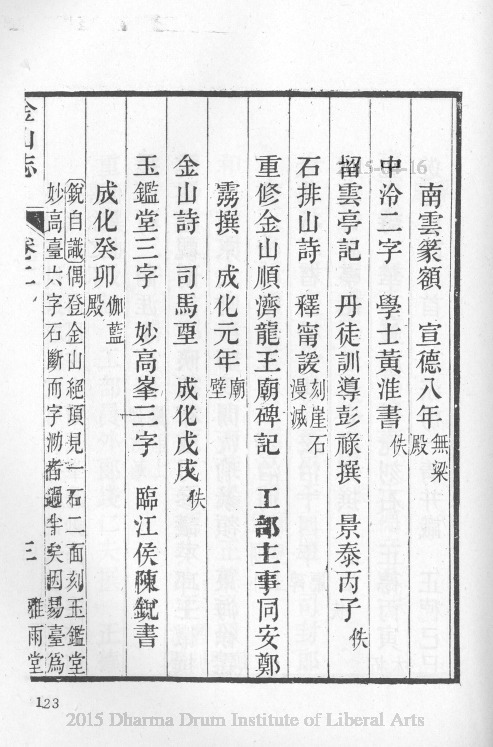 南雲篆額　宣德八年無梁殿
中泠二字　學士黃淮書佚
留雲亭記　丹徒訓導彭祿撰　景泰丙子佚
石排山詩　釋甯諼刻崖石漫滅
重修金山順濟龍王廟碑記　工部主事同安鄭
霱撰　成化元年廟壁
金山詩　司馬垔　成化戊戌佚
玉鑑堂三字　妙高峯三字　臨江侯陳銳書
成化癸卯伽藍殿
銳自識偶登金山絕頂見一石二面刻玉鑑堂
妙高臺六字石斷而字泐者過半矣因易臺為
金山志　卷二　三　雅雨堂
123
2015-04-16
2015 Dharma Drum Institute of Liberal Arts